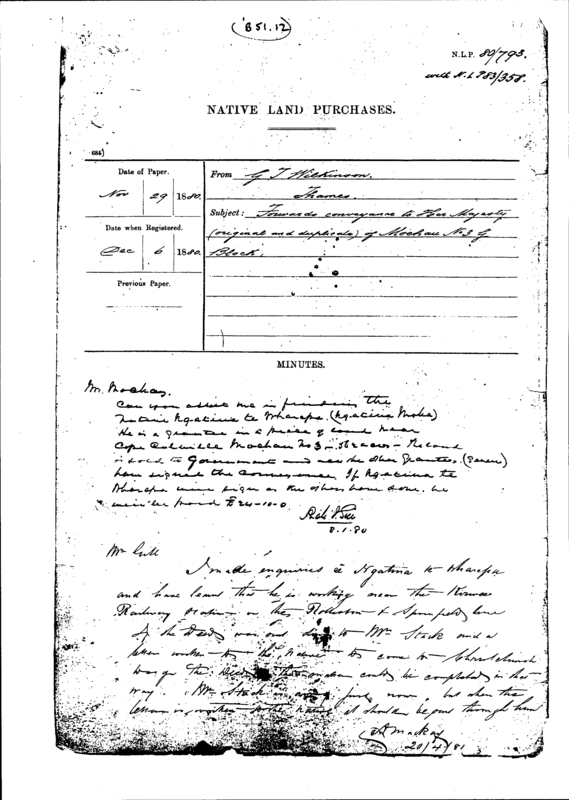 (B 51.12)
N.L.P. 80/793.
with N.L.P 83/358.
NATIVE LAND PURCHASES.
Date of Paper.
Nov 29 1880.
Date when Registered.
Dec 6 1880.
Previous Paper.
From G T Wilkinson.
Thames.
Subject: Forwards conveyance to Her Majesty
(original and duplicate) of Moehau No 3 G
Block.
MINUTES.
Mr. Mackay.
Can you assist me in finding the
native Ngatina te Wharepa. (Ngatina Moka)
He is a grantee in a piece of land near
Cape Colville Moehau No 3 - acres - The land
is sold to Government and the other Grantees. (seven)
have signed the Conveyance. If Ngatina te
Wharepa will sign as the others have done. he
will be paid £24-10-0.
Mr Gill
I made enquiries Ngatina te Wharepa
and have learnt that he is working near the
Railway Station on the Rolleston & Springfield line
If the Deed was to Mr Stack and a
letter to the Native to come to Christchurch
the could be completed in that
way. Mr Stack is just now, but when the
letter is to the Native it should be sent through him
A Mackay
20/4/81